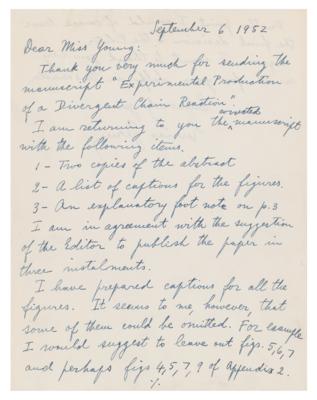 September 6 1952
Dear Miss Young:
Thank you very much for sending the
manuscript "Experimental Production
of a Divergent Chain Reaction".
corrected
I am returning to you the ^ manuscript
with the following items.
1 - Two copies of the abstract
2 - A list of captions for the figures.
3 - An explanatory foot note on p. 3
I am in agreement with the suggestion
of the Editor to publish the paper in
three instalments.
I have prepared captions for all the
figures. It seems to me, however, that
some of them could be omitted. For example
I would suggest to leave out figs. 5, 6, 7
and perhaps figs 4, 5, 7, 9 of Appendix 2.
%